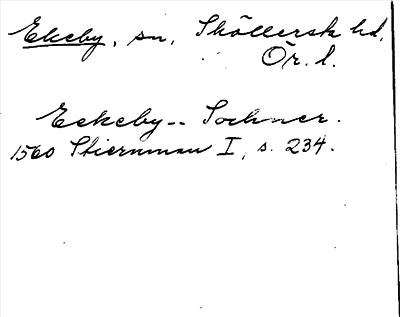 Ekeby, sn, Sköllersta hd,
Ör. l.
Eekeby -- Sochner.
1560 Stiernman I, s. 234.